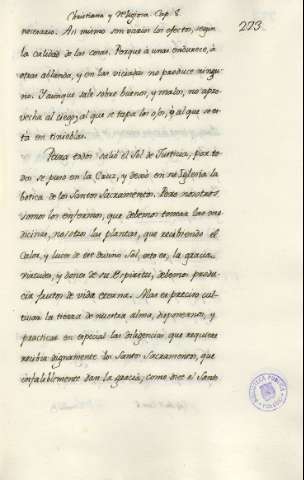 Christiana y Religiosa Cap. 8.
223.
necesario. Asi mismo son varios los efectos, segun
la calidad de las cosas. Porque à unas endurece, à
otras ablanda, y en las viciadas no produce ningu-
no. Y aunque sale sobre buenos, y malos, no apro-
vecha al ciego, al que se tapa los ojos, y al que es-
tà en tinieblas.
Para todos saliò el Sol de Justicia, por to-
dos se puso en la Cruz, y dexò en su Iglesia la
botica de los Santos Sacramentos. Pero nosotros
somos los enfermos, que debemos tomar las me-
dicinas, nosotros las plantas, que recibiendo el
calor, y luces de este divino Sol, esto es, la gracia,
virtudes, y dones de su Espiritu, debemos produ-
cir frutos de vida eterna. Mas es preciso cul-
tivar la tierra de nuestra alma, disponernos, y
practicar en especial las diligencias que requiere
recibir dignamente los Santos Sacramentos, que
infaliblemente dan la gracia; como dice el Santo
BIBLIOTECA PUBLICA
TOLEDO